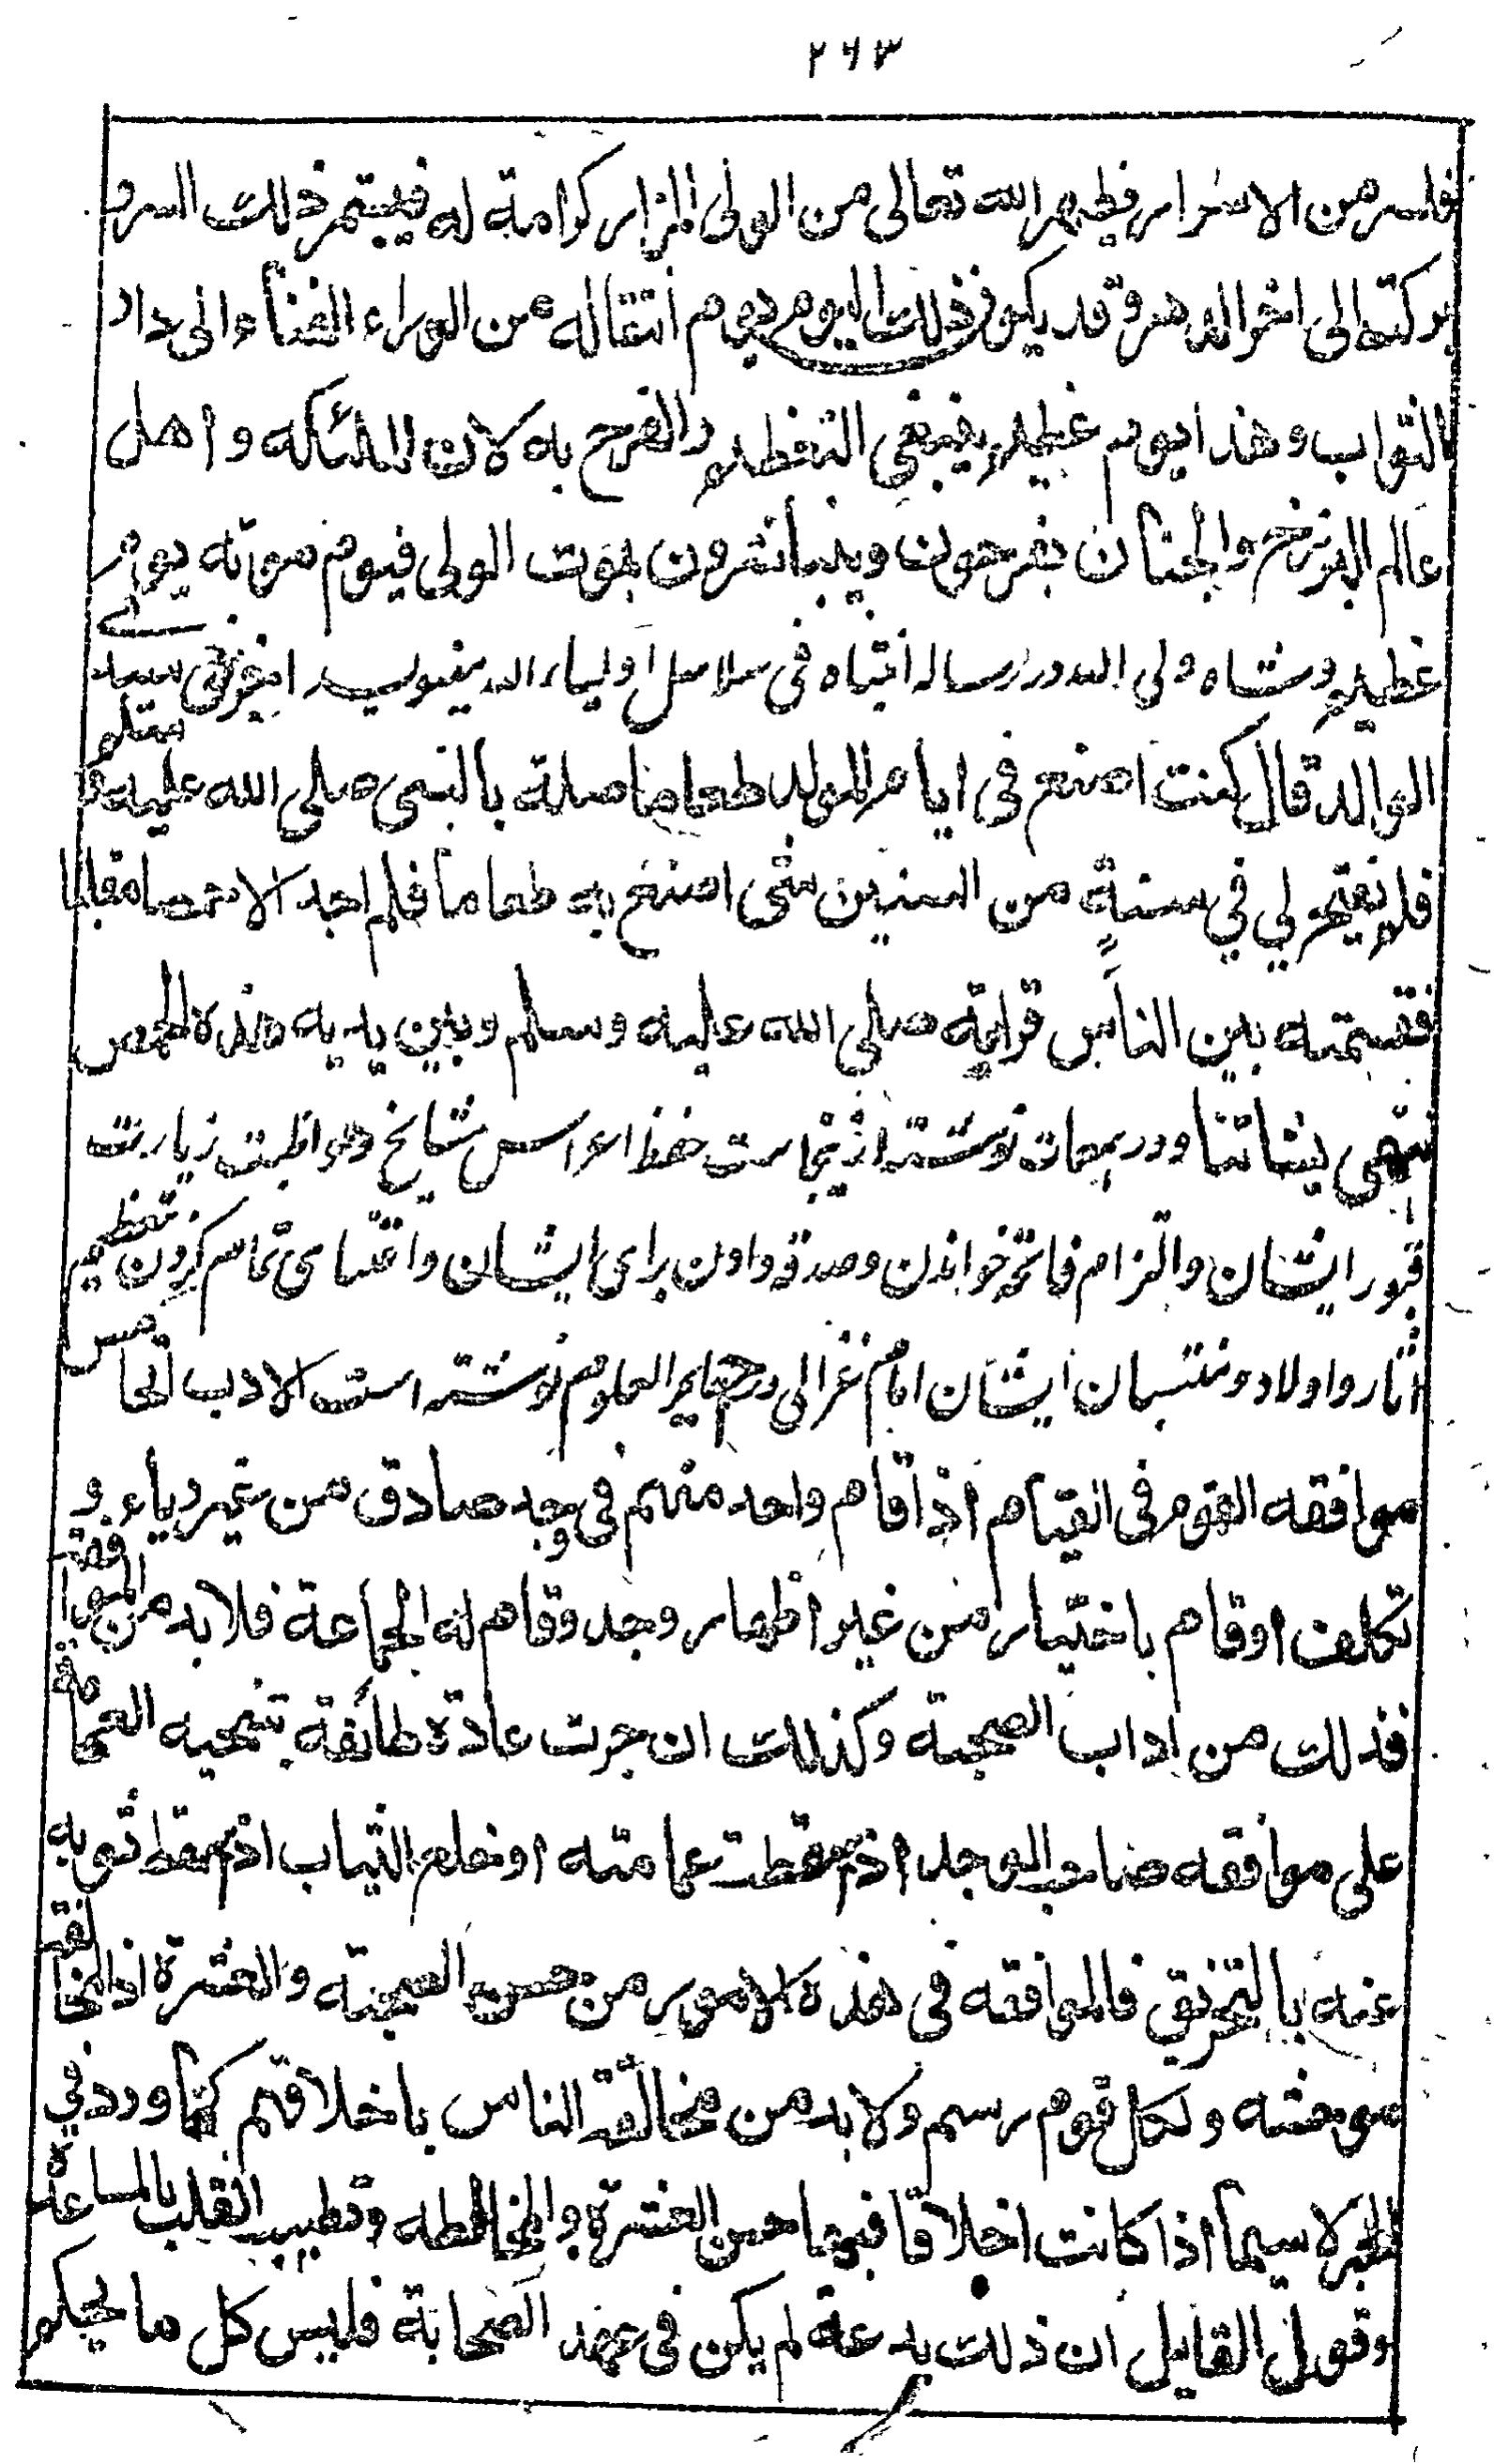 ۲۶۳
فلسر من الاسرار فيظهر الله تعالى من الولى المزار كرامة له فيستمر ذلك السر و
بركته الى اخر الدهر وقد يكون ذلك اليوم يوم انتقاله من الوراء الفناء الى داد
الثواب وهذا يوم عظيم ينبغى التعظيم والفرح به لان الملئكه و اهل
عالم البرزخ والجنان يفرحون ويتباشرون بموت الولى فيوم موته يوم
عظيم و شاه ولي الله در رساله انتباه فى سلاسل اولياء الله مينويسد اخبرنى سيدى
الوالد قال كنت اصنع فى ايام المولد طعاما صلة بالنبى صلى الله عليه وسلم
فلم يفتح لي في سنةٍ من السنين شى اصنع به طعاما فلم اجد الا حمصا مقليا
فقسمته بين الناس فرايته صلى الله عليه وسلم وبين يديه هذه الحمص
متبهجا بشاشا و در همعات نوشته ازينجاست حفظ اعراس مشايخ و مواظبت زيارت
قبور ايشان والتزام فاتحه خواندن وصدقه دادن براى ايشان واعتناى تمام كردن تعظيم
اثار و اولاد و منتسبان ايشان امام غزالى در احياء العلوم نوشته است الادب الخامس
موافقه القوم فى القيام اذا قام واحد منهم فى وجد صادق من غير رياء و
تكلف او قام باختيار من غير اظهار وجد وقام له الجماعة فلا بد من الموافقة
فذلك من اداب الصحبة وكذلك ان جرت عادة طائفة بتنحيه العمامة
على موافقه صاحب الوجد اذا سقطت عمامته او خلع الثياب اذا سقط ثوبه
عنه بالتخريق فالموافقه فى هذه الامور من حسن الصحبة والعشرة اذ المخالفة
موحشه ولكل قوم رسم ولا بد من مخالقة الناس باخلاقهم كما ورد في
الخبر لا سيما اذا كانت اخلاقا فيها حسن العشرة والمخالطه وتطييب القلب بالمساعدة
وقول القايل ان ذلك بدعة لم يكن فى عهد الصحابة فليس كل ما يحكم